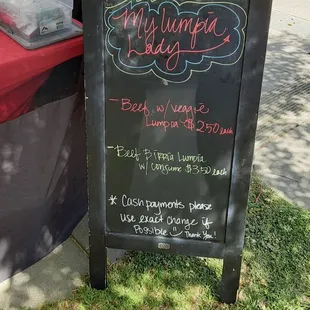 My lumpia
Lady
- Beef w/ veggie
Lumpia $2.50 each
- Beef Birria Lumpia
w/ consume $3.50 each
* Cash payments please
use exact change if
Possible Thank you!